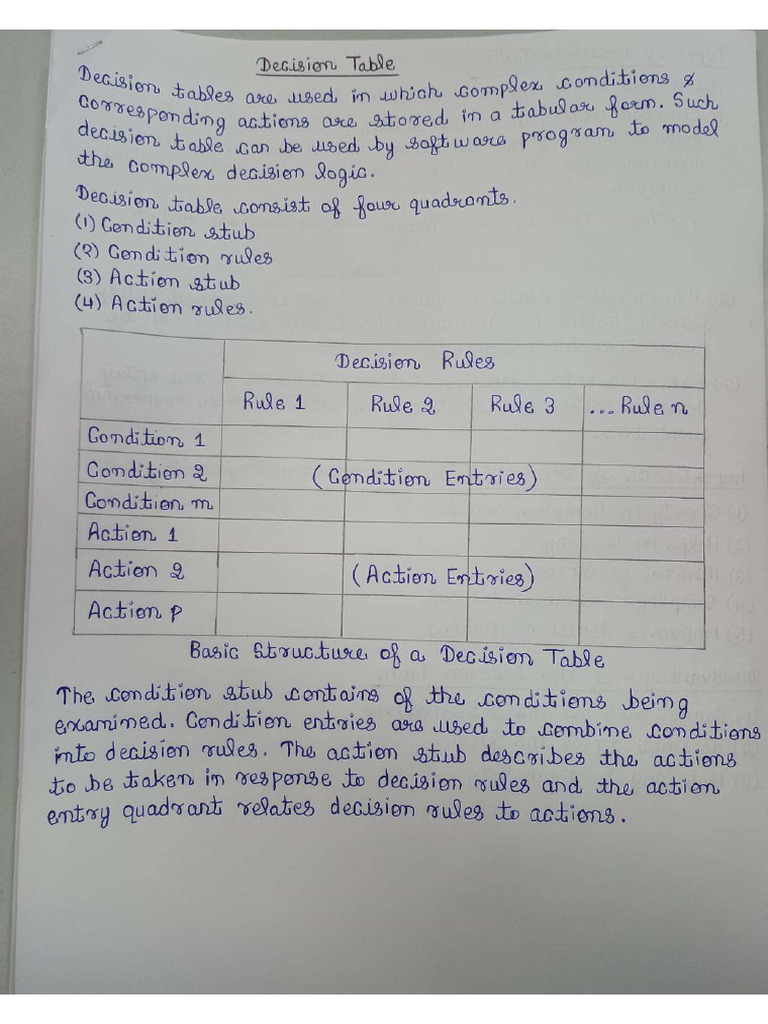 Decision Table
Decision tables are used in which complex conditions &
corresponding actions are stored in a tabular form. Such
decision table can be used by software program to model
the complex decision logic.
Decision table consist of four quadrants.
(1) Condition stub
(2) Condition rules
(3) Action stub
(4) Action rules.
Decision Rules
Rule 1 Rule 2 Rule 3 ... Rule n
Condition 1
Condition 2 (Condition Entries)
Condition m
Action 1
Action 2 (Action Entries)
Action p
Basic Structure of a Decision Table
The condition stub contains of the conditions being
examined. Condition entries are used to combine conditions
into decision rules. The action stub describes the actions
to be taken in response to decision rules and the action
entry quadrant relates decision rules to actions.